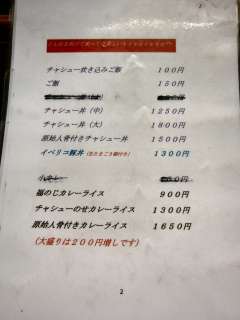 チャシュー炊き込みご飯 100円
ご飯 150円
チャシュー丼 (中) 1250円
チャシュー丼 (大) 1800円
原始人骨付きチャシュー丼 1500円
イベリコ豚丼 1300円
福のじカレーライス 900円
チャシューのせカレーライス 1300円
原始人骨付きカレーライス 1650円
(大盛りは200円増しです)
2